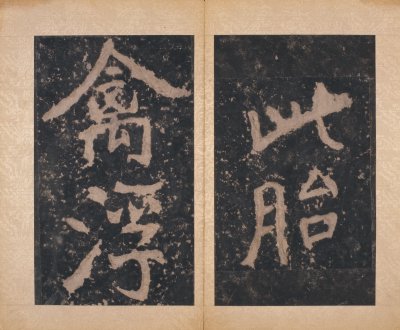 此胎
禽浮